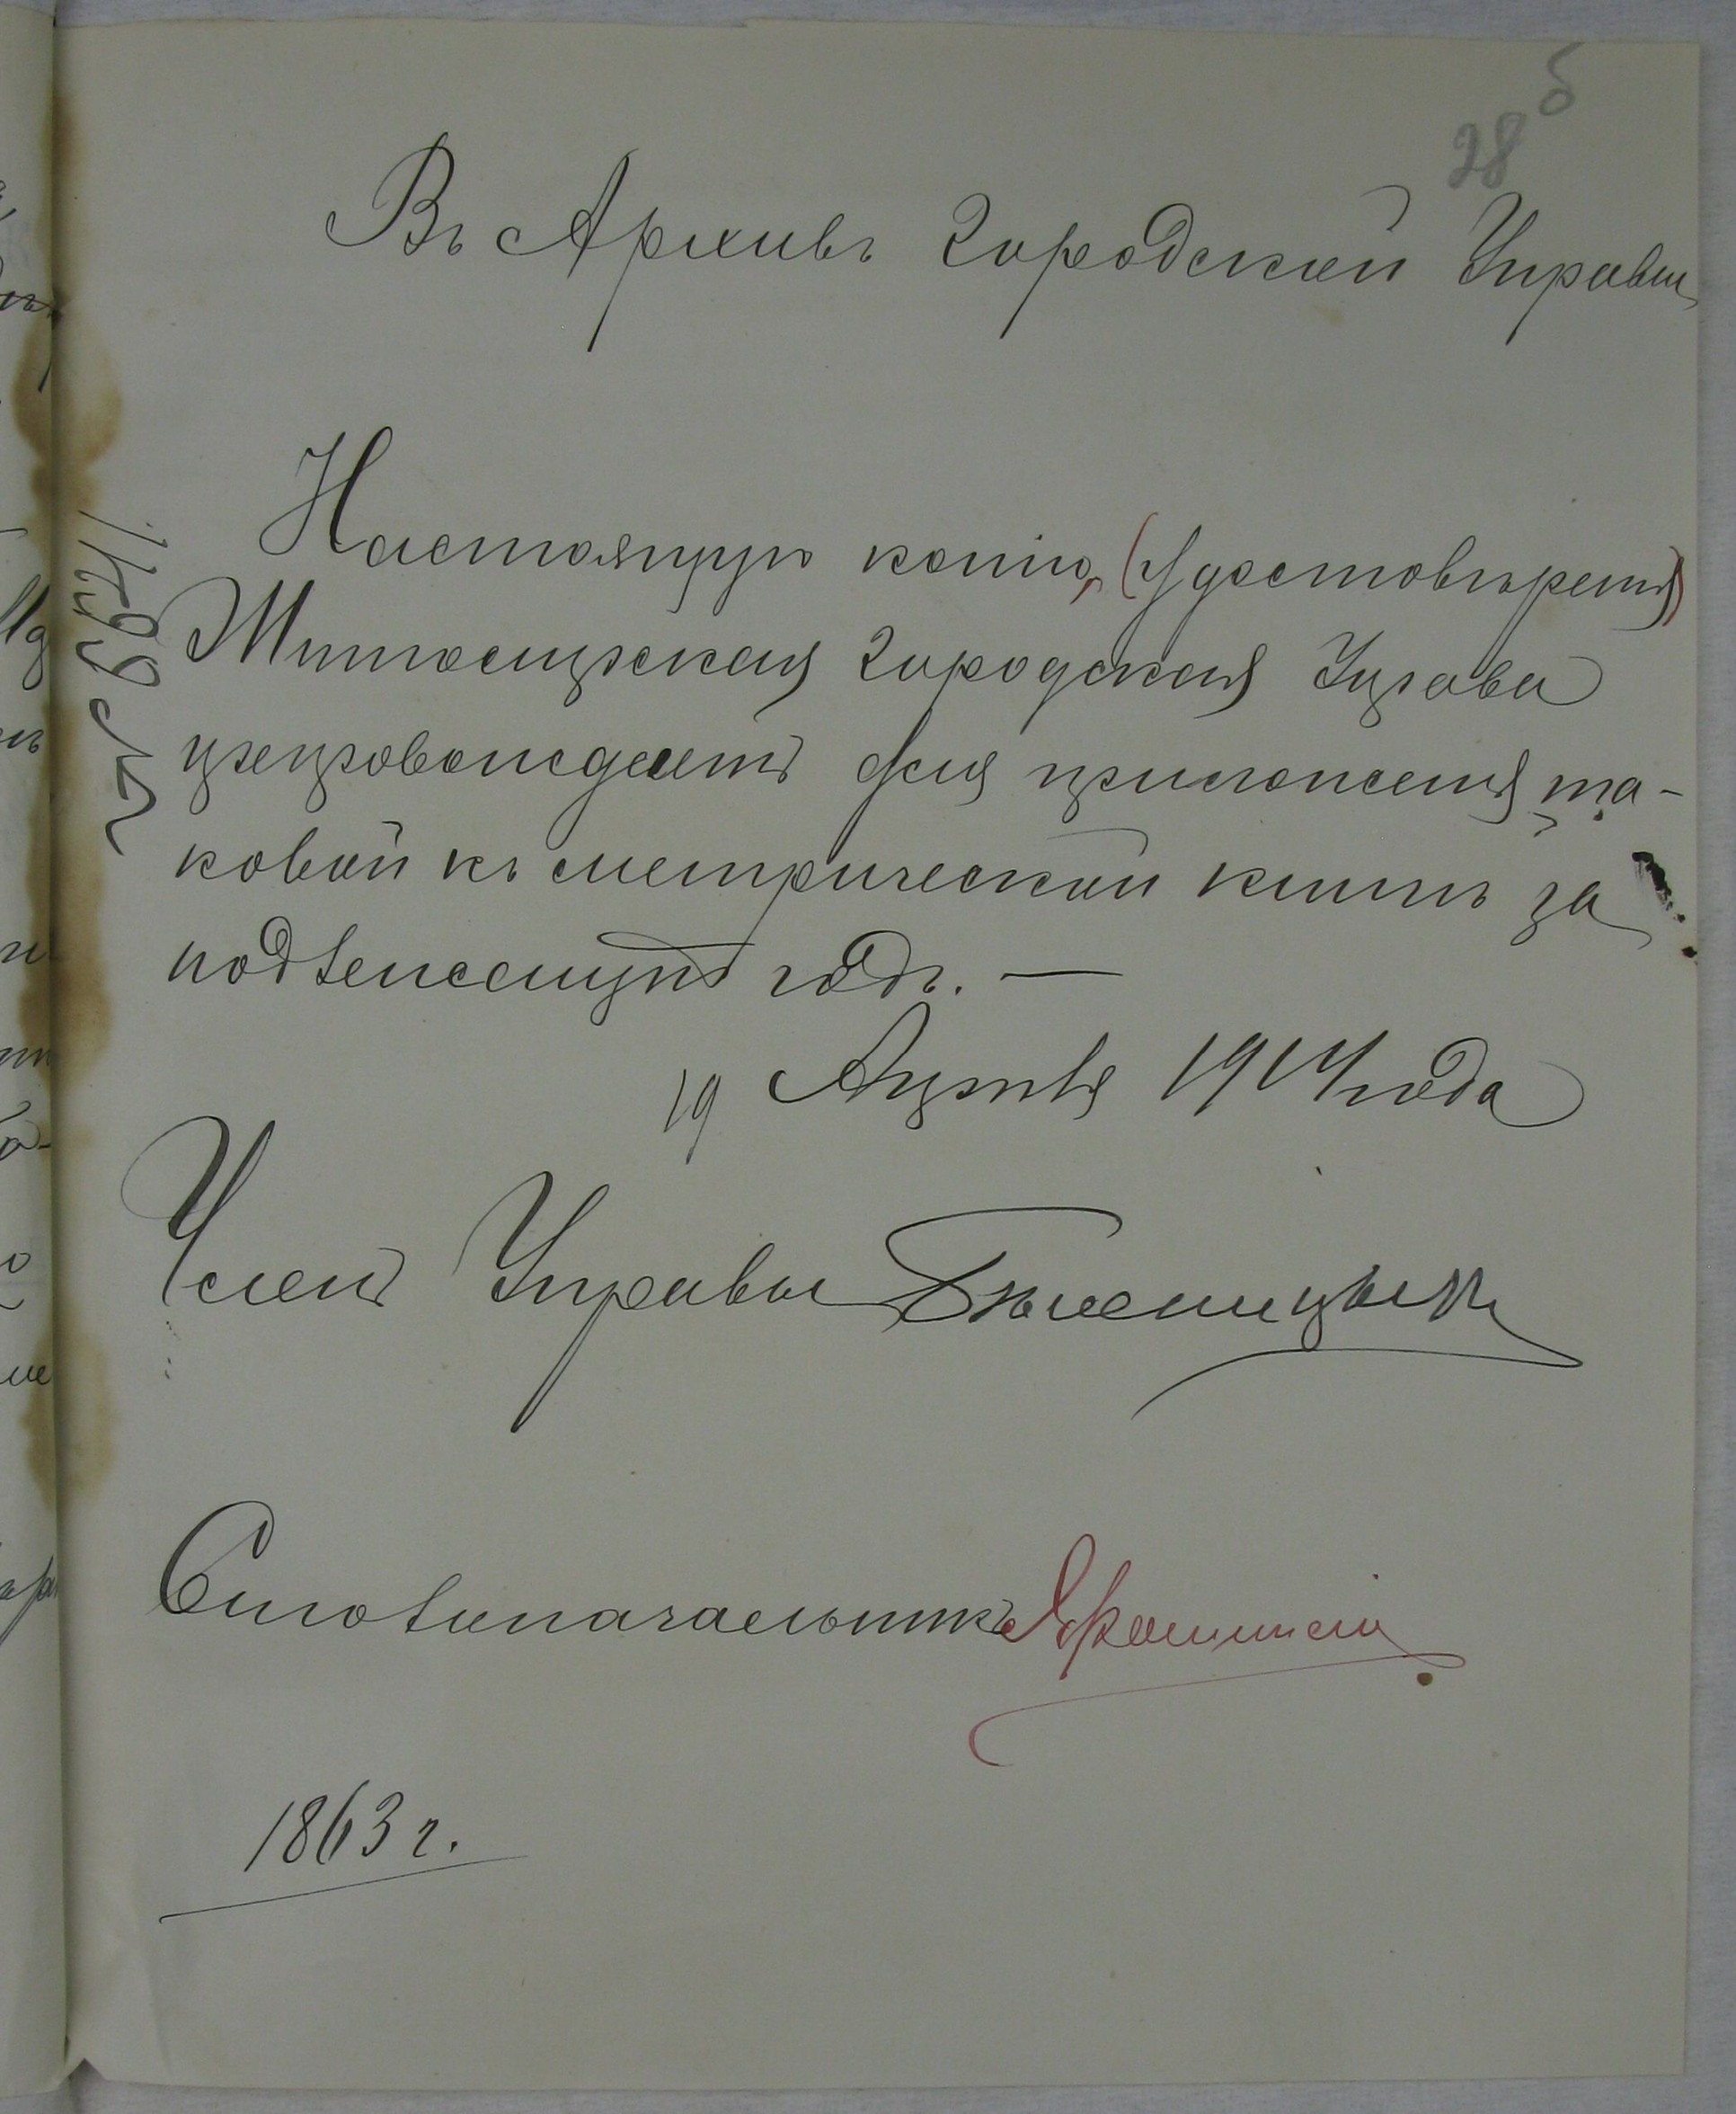 28 б
Въ Архивъ Городской Управы
Настоящую копію, (удостовѣренія)
Житомірская Городская Управа
препровождаетъ для приложенія та-
ковой къ метрической книгѣ за
подлежащій годъ. —
19 Апрѣля 1914 года
Членъ Управы
Столоначальникъ
1863 г.